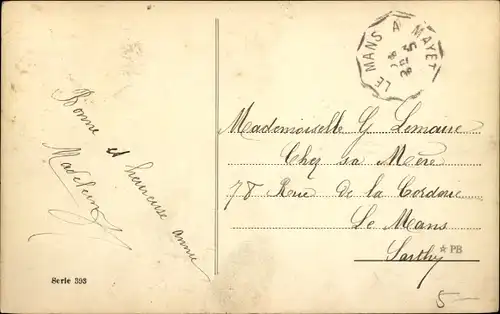 LE MANS A MAYET
Bonne et heureuse année
Madeleine
Mademoiselle G Lemaire
Chez sa Mère
78 Rue de la Corderie
Le Mans
Sarthe
* PB
Serie 393
5-